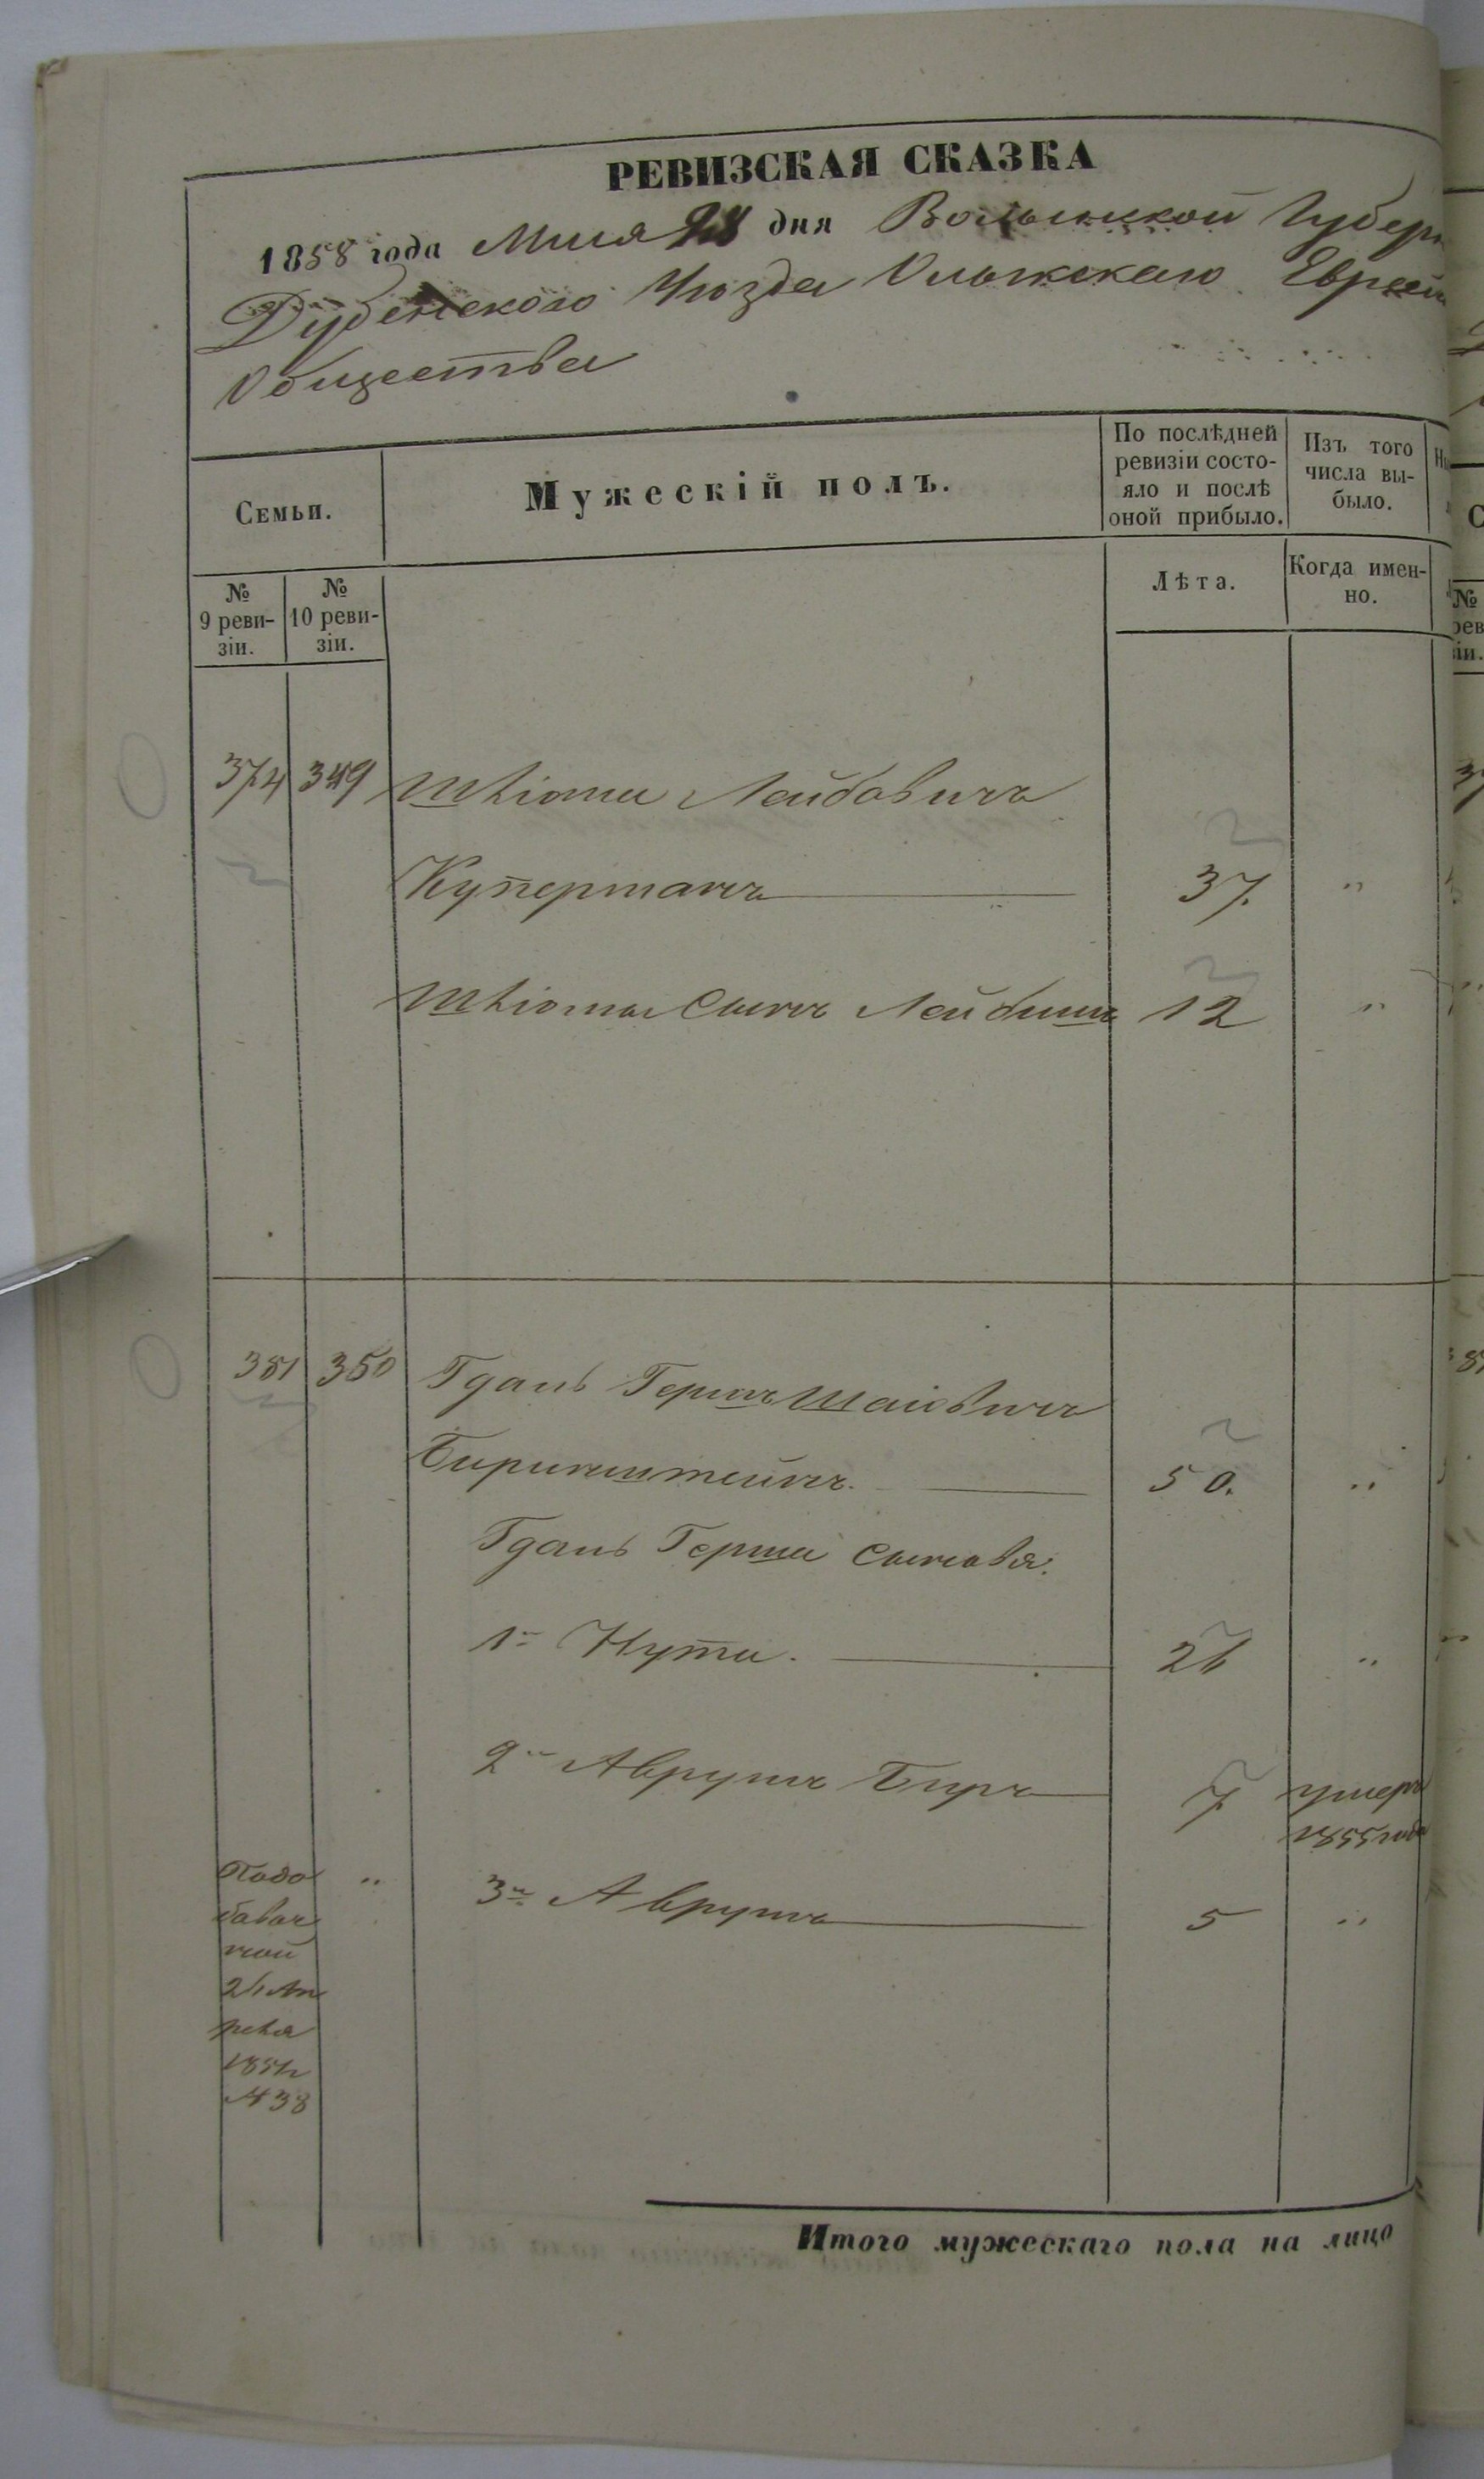 РЕВИЗСКАЯ СКАЗКА
1858 года Мая 28 дня Волынской Губерн
Дубенского Уѣзда Олыкскаго Еврей
Общества
Семьи.
Мужескій полъ.
По послѣдней
ревизіи состо-
яло и послѣ
оной прибыло.
Изъ того
числа вы-
было.
№
9 реви-
зіи.
№
10 реви-
зіи.
Лѣта.
Когда имен-
но.
374 349 Лейбовичъ
Куперманъ 37. "
Сынъ Лейбишъ 12 "
381 350 Гдаль Гершъ Шаіовичъ
Биринштейнъ. 50. "
Гдаль Герша сыновья:
1й Нута. 26 "
2й Аврумъ Беръ 7 умеръ
1855 года
По до
бавоч
ной " 3й Аврумъ 5 "
№ 38
Итого мужескаго пола на лицо